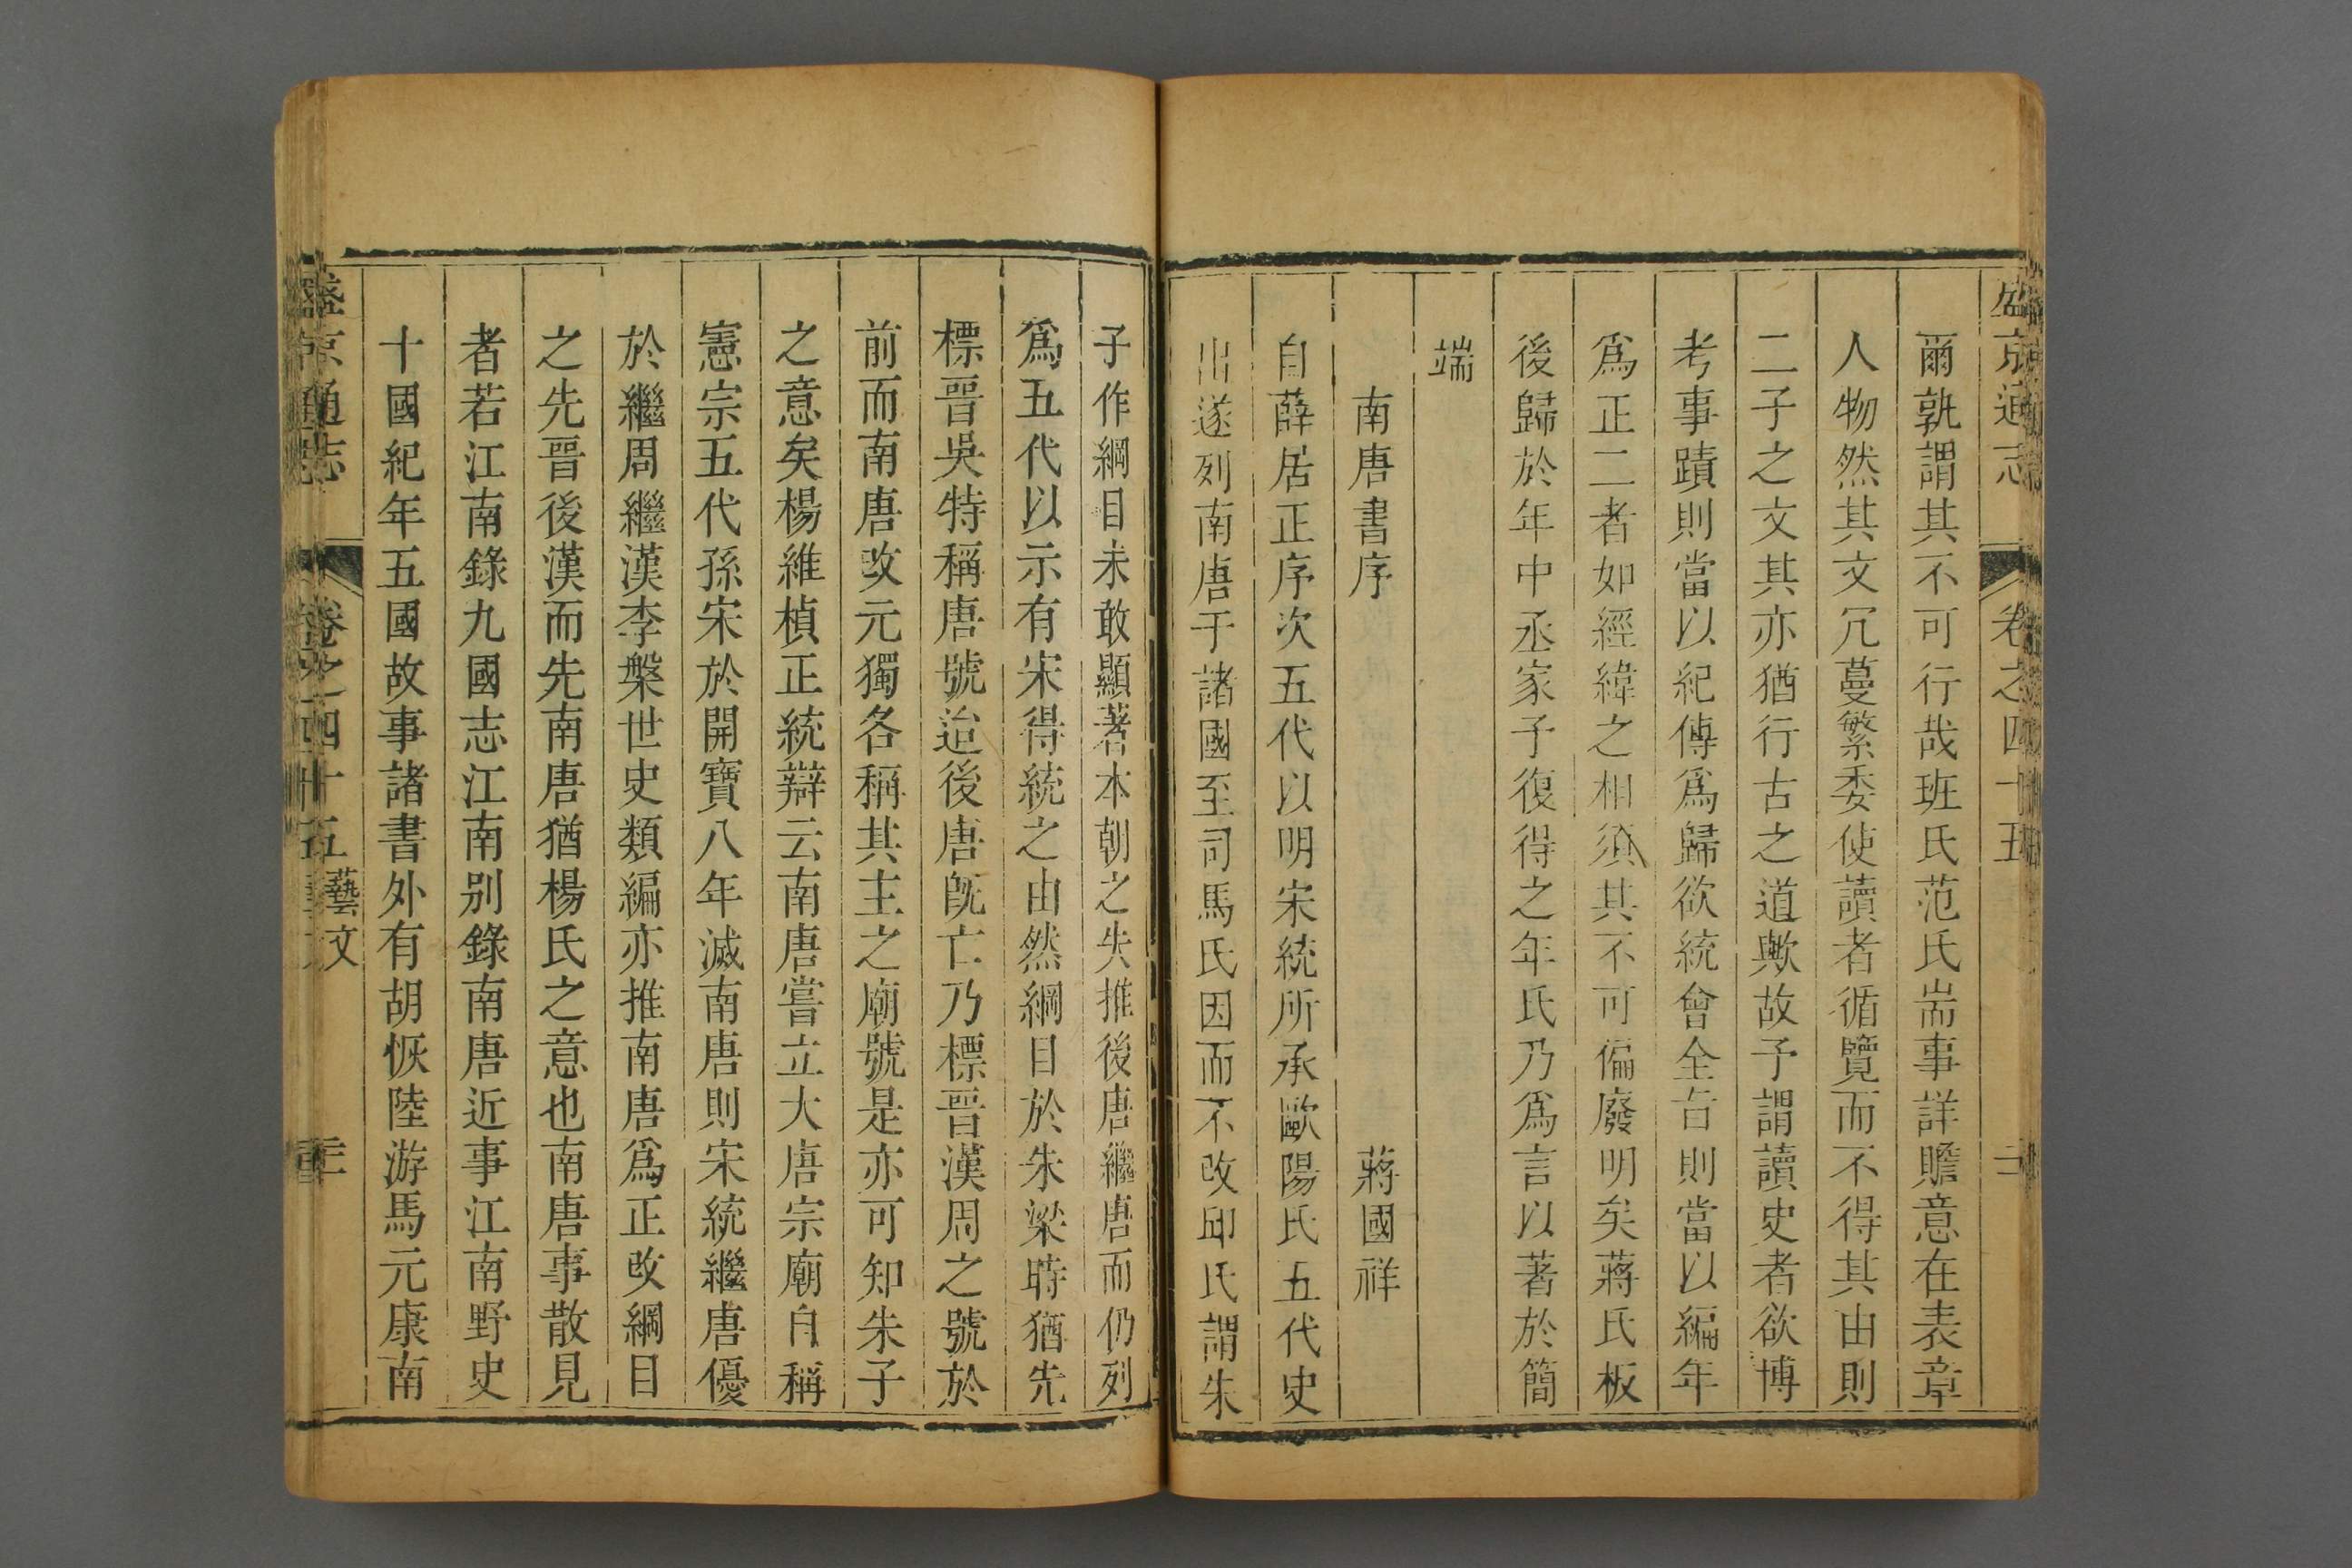 盛京通志 卷之四十五 二
爾孰謂其不可行哉班氏范氏耑事詳贍意在表章
人物然其文冗蔓繁委使讀者循覽而不得其由則
二子之文其亦猶行古之道歟故予謂讀史者欲博
考事蹟則當以紀傳爲歸欲統會全旨則當以編年
爲正二者如經緯之相須其不可偏廢明矣蔣氏板
後歸於年中丞家予復得之年氏乃爲言以著於簡
端
南唐書序 蔣國祥
自薛居正序次五代以明宋統所承歐陽氏五代史
出遂列南唐于諸國至司馬氏因而不改邱氏謂朱
子作綱目未敢顯著本朝之失推後唐繼唐而仍列
爲五代以示有宋得統之由然綱目於朱梁時猶先
標晉吳特稱唐號迨後唐旣亡乃標晉漢周之號於
前而南唐改元獨各稱其主之廟號是亦可知朱子
之意矣楊維楨正統辯云南唐嘗立大唐宗廟自稱
憲宗五代孫宋於開寶八年滅南唐則宋統繼唐優
於繼周繼漢李槃世史類編亦推南唐爲正改綱目
之先晉後漢而先南唐猶楊氏之意也南唐事散見
者若江南錄九國志江南别錄南唐近事江南野史
十國紀年五國故事諸書外有胡恢陸游馬元康南
盛京通志 卷之四十五 藝文